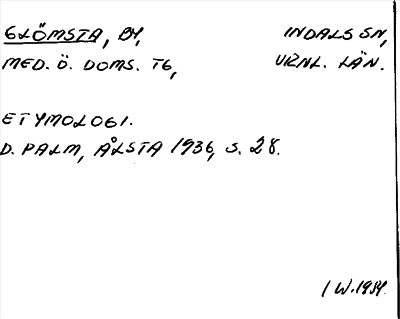 GLÖMSTA, BY, INDALS SN,
MED. Ö. DOMS. TG, VRNL. LÄN.
ETYMOLOGI.
D. PALM, ÅLSTA 1936, S. 28.
I W. 1954.